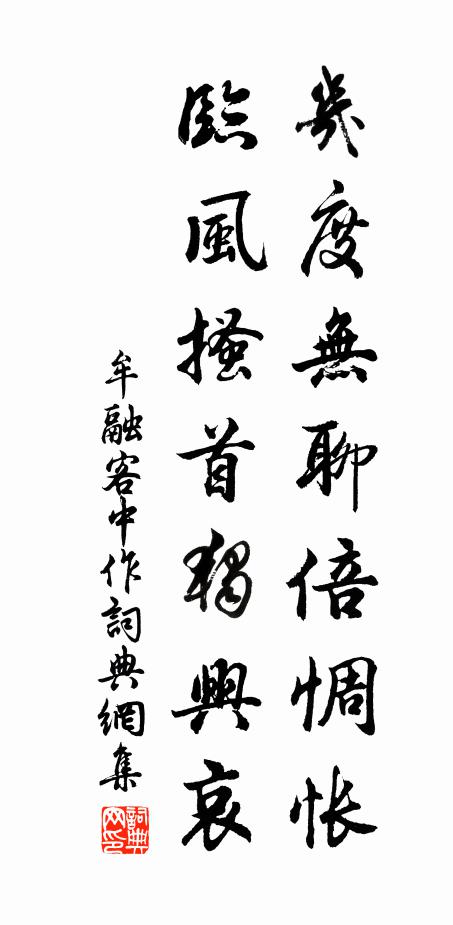 幾度無聊倍惆悵
臨風搔首獨興哀
牟融客中作詞典網集
詞典网印